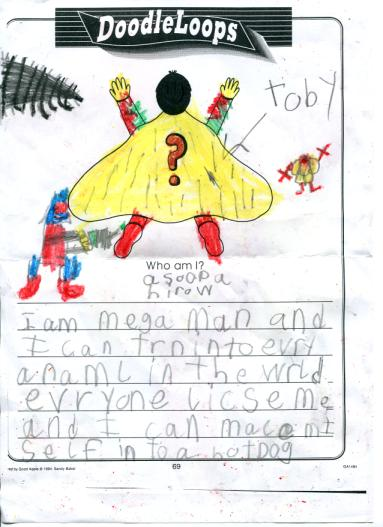 DoodleLoops
toby
?
Who am I?
a soopa
hirow
I am mega man and
I can trnintoevry
anamL in the wrld
evryone licse me
and I can mace mI
self in to a hotdog
69
GA1491